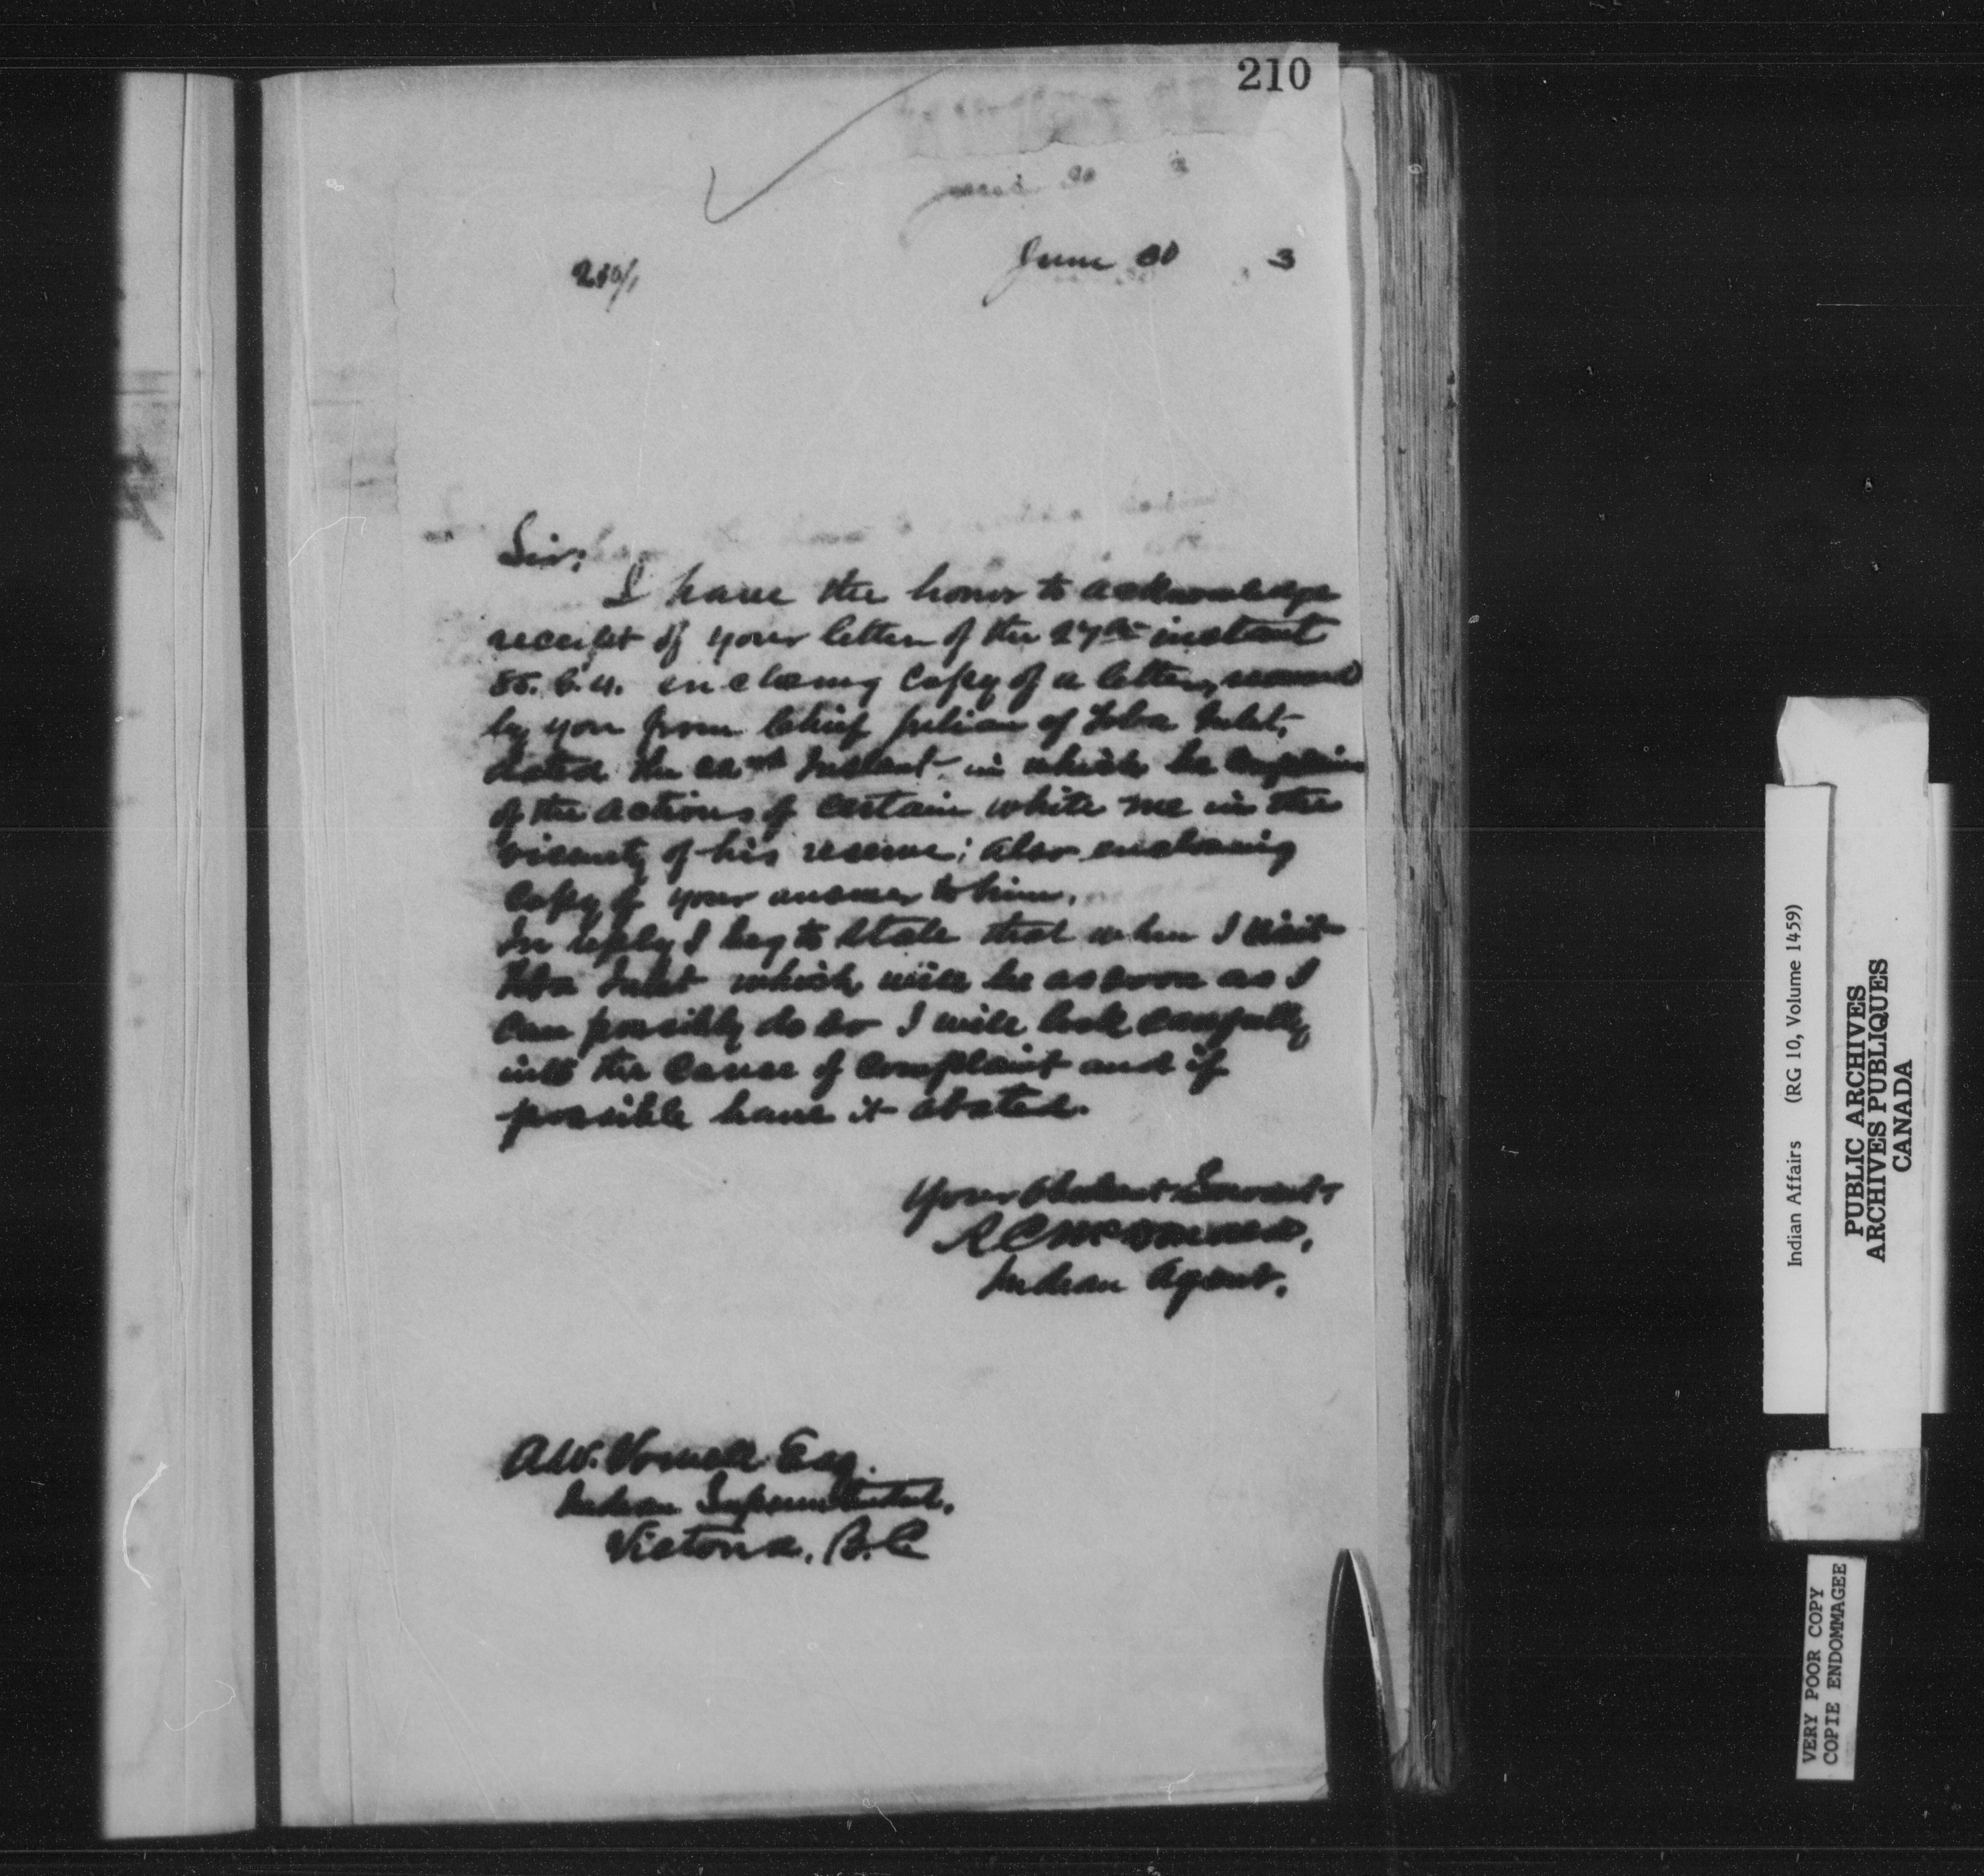 210
June 30 3
Sir:
I have the honor to acknowledge
receipt of your letter of the 27th instant
enclosing Copy of a letter, received
by you from Chief Julian of Toba Inlet,
dated the 22nd Instant in which he complains
of the actions of certain white me in the
vicinity of his reserve; also enclosing
Copy of your answer to him.
In reply I beg to state that when I visit
Toba Inlet which will be as soon as I
can possibly do so I will look carefully
into the cause of complaint and if
possible have it abated.
Your Obedient Servant,
R C McDonald,
Indian Agent.
A.W. Vowell Esq.
Indian Superintendent,
Victoria, B.C
Indian Affairs (RG 10, Volume 1459)
PUBLIC ARCHIVES
ARCHIVES PUBLIQUES
CANADA
VERY POOR COPY
COPIE ENDOMMAGEE